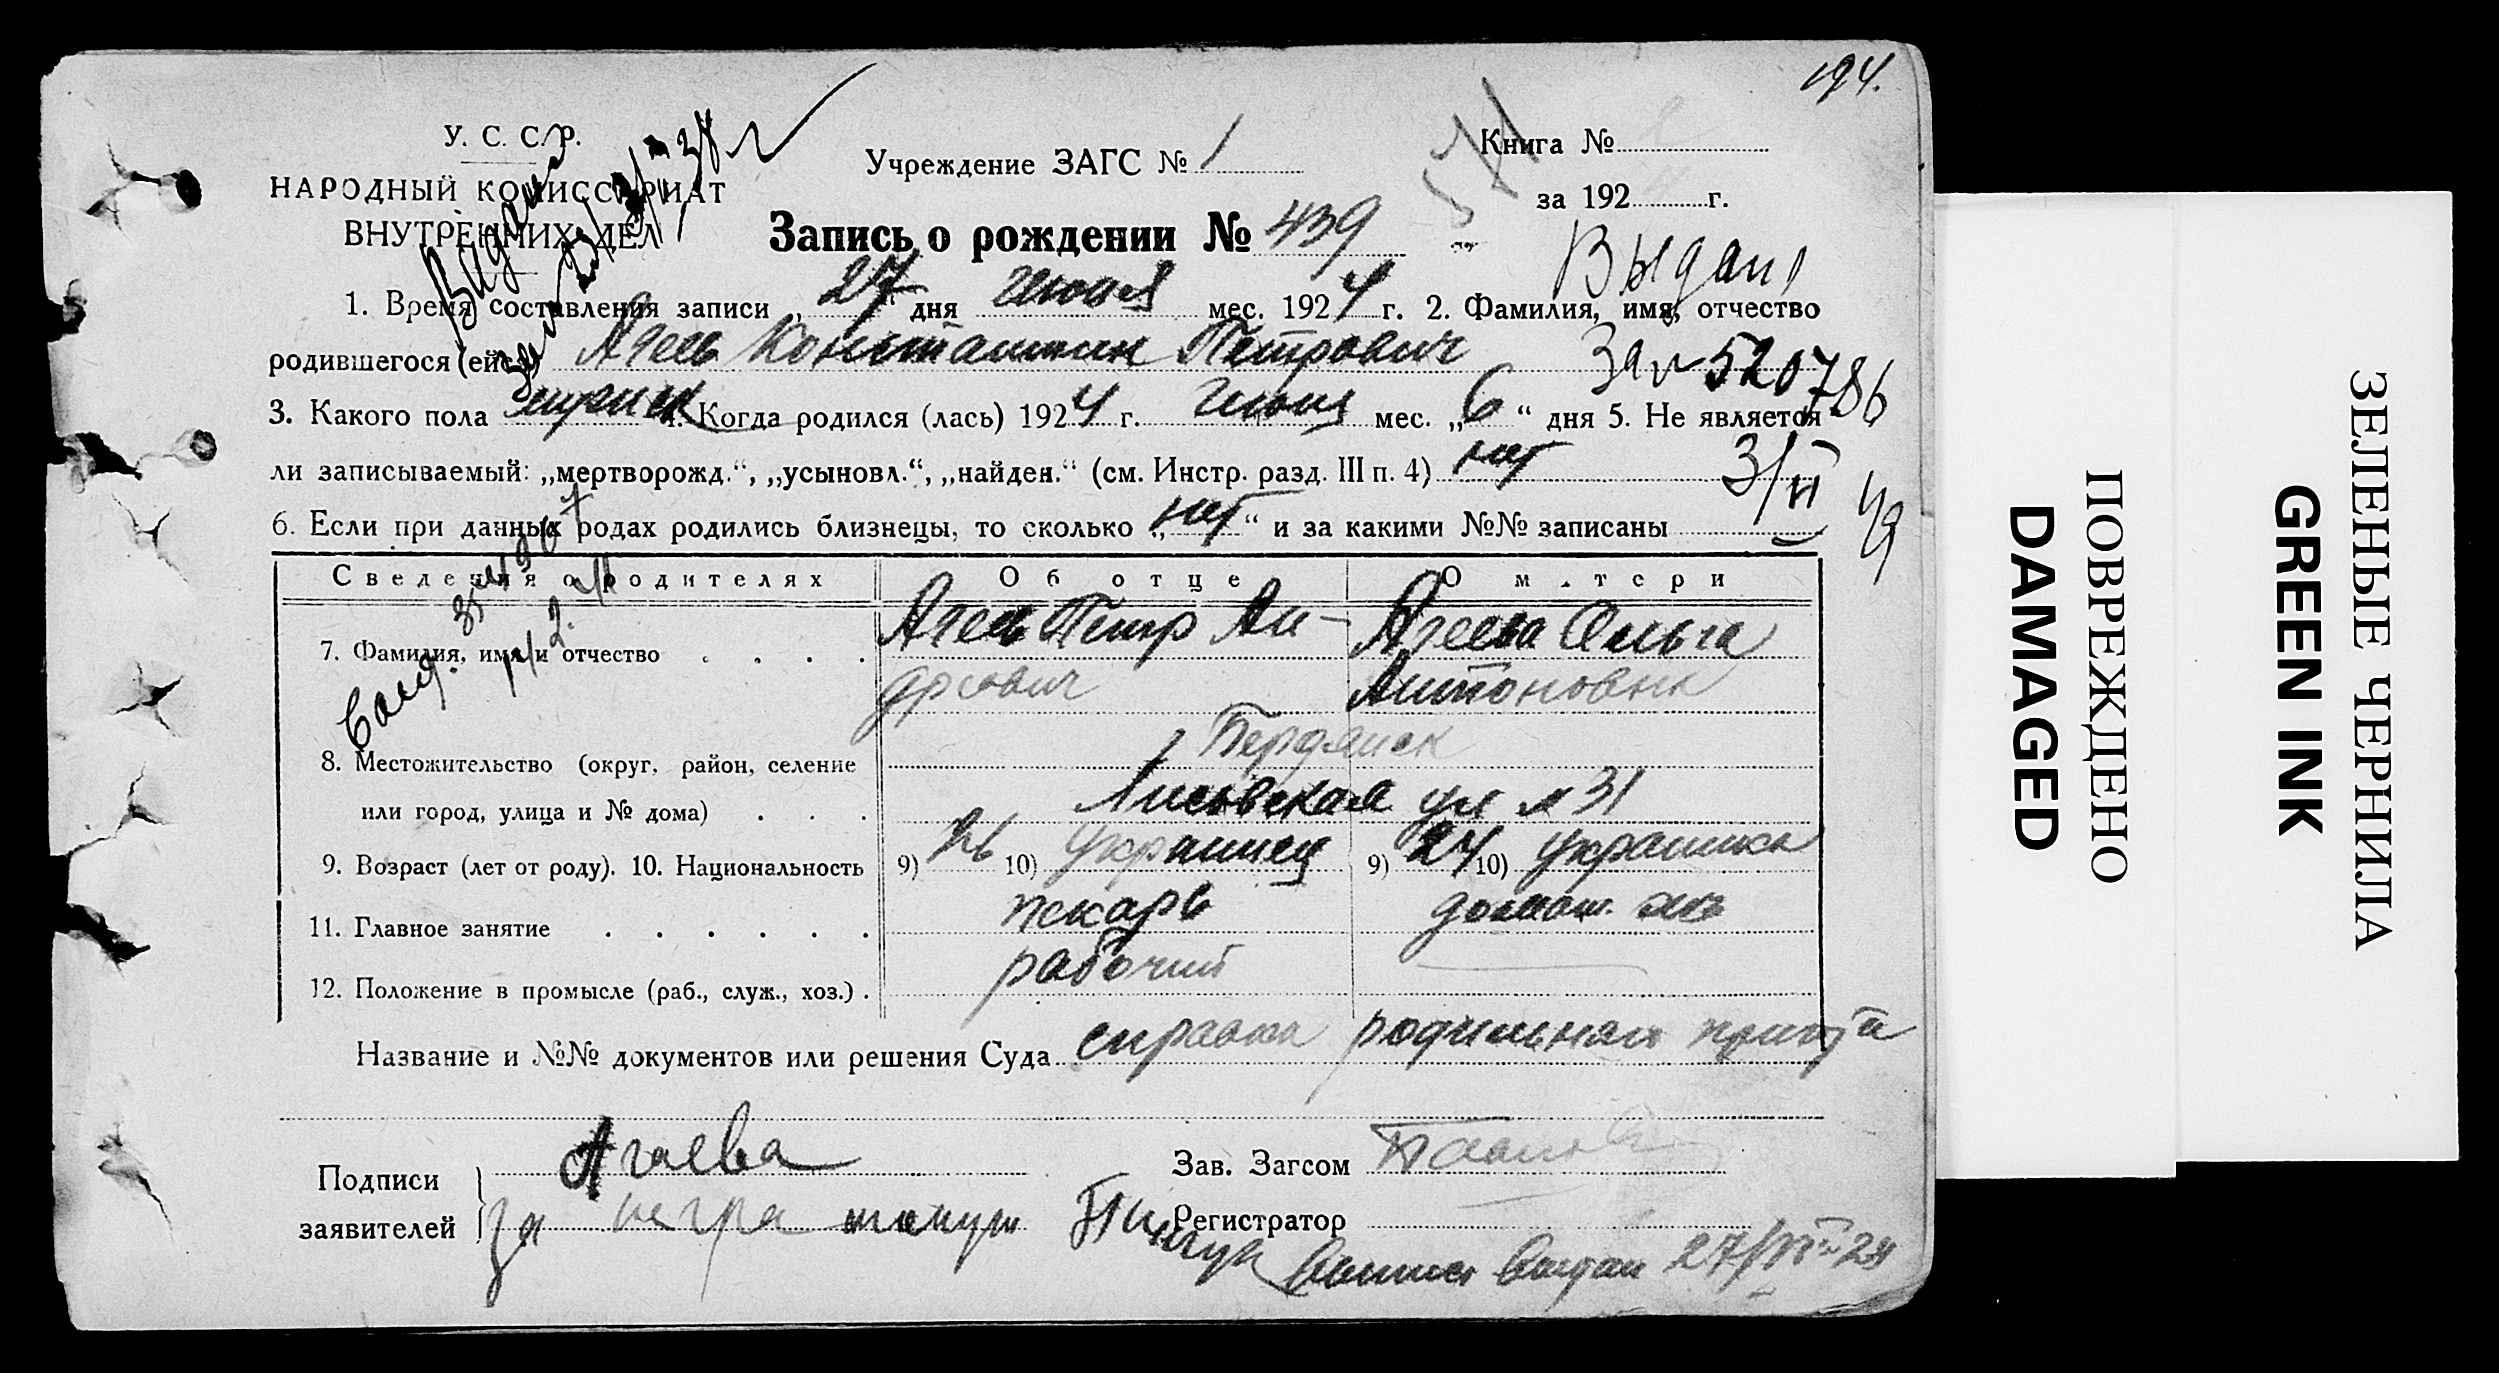 194.
У. С. С. Р.
НАРОДНЫЙ КОМИССАРИАТ
ВНУТРЕННИХ ДЕЛ
Учреждение ЗАГС № 1
Книга №
за 192 г.
Запись о рождении № 439
Выдан
1. Время составления записи „27“ дня июня мес. 1924 г. 2. Фамилия, имя, отчество
родившегося (ейся) Агеев Константин Петрович
520786
3. Какого пола мужск 4. Когда родился (лась) 1924 г. июня мес. „6“ дня 5. Не является
ли записываемый: „мертворожд.“, „усыновл.“, „найден.“ (см. Инстр. разд. III п. 4) нет
3/II 49
6. Если при данных родах родились близнецы, то сколько „нет“ и за какими №№ записаны
Сведения о родителях Об отце О матери
7. Фамилия, имя и отчество Агеев Петр Ан- Агеева Ольга
дреевич Антоновна
8. Местожительство (округ, район, селение Бердянск
или город, улица и № дома) ул № 31
9. Возраст (лет от роду). 10. Национальность 9) 26 10) украинец 9) 24 10) украинка
11. Главное занятие пекарь домаш. хоз
12. Положение в промысле (раб., служ., хоз.) рабочий
Название и №№ документов или решения Суда справка родильная приюта
Подписи
заявителей
Агаева
Зав. Загсом
Регистратор
выдан 27/VI 24
ПОВРЕЖДЕНО
DAMAGED
ЗЕЛЕНЫЕ ЧЕРНИЛА
GREEN INK